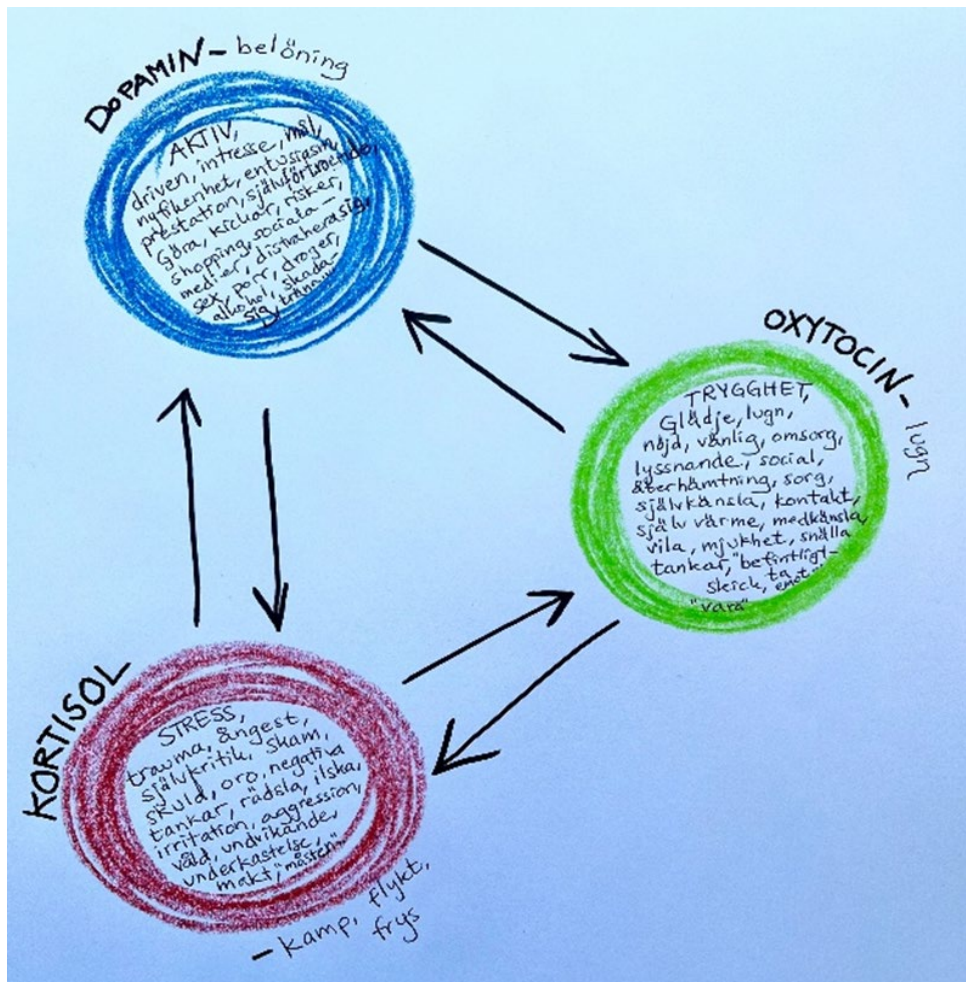 DOPAMIN - belöning
AKTIV,
driven, intresse, mål,
nyfikenhet, entusiasm,
prestation, självförtroende,
Göra, kickar, risker,
shopping, sociala-
medier, distrahera sig,
sex, porr, droger,
alkohol, skada-
sig, träna...
OXYTOCIN - lugn
TRYGGHET,
Glädje, lugn,
nöjd, vänlig, omsorg,
lyssnande, social,
återhämtning, sorg,
självkänsla, kontakt,
själv värme, medkänsla,
vila, mjukhet, snälla
tankar, "befintligt-
skick, ta emot",
"vara"
KORTISOL
STRESS,
trauma, ångest,
självkritik, skam,
skuld, oro, negativa
tankar, rädsla, ilska,
irritation, aggression,
våld, undvikande,
underkastelse,
makt, "måsten"
- kamp, flykt,
frys